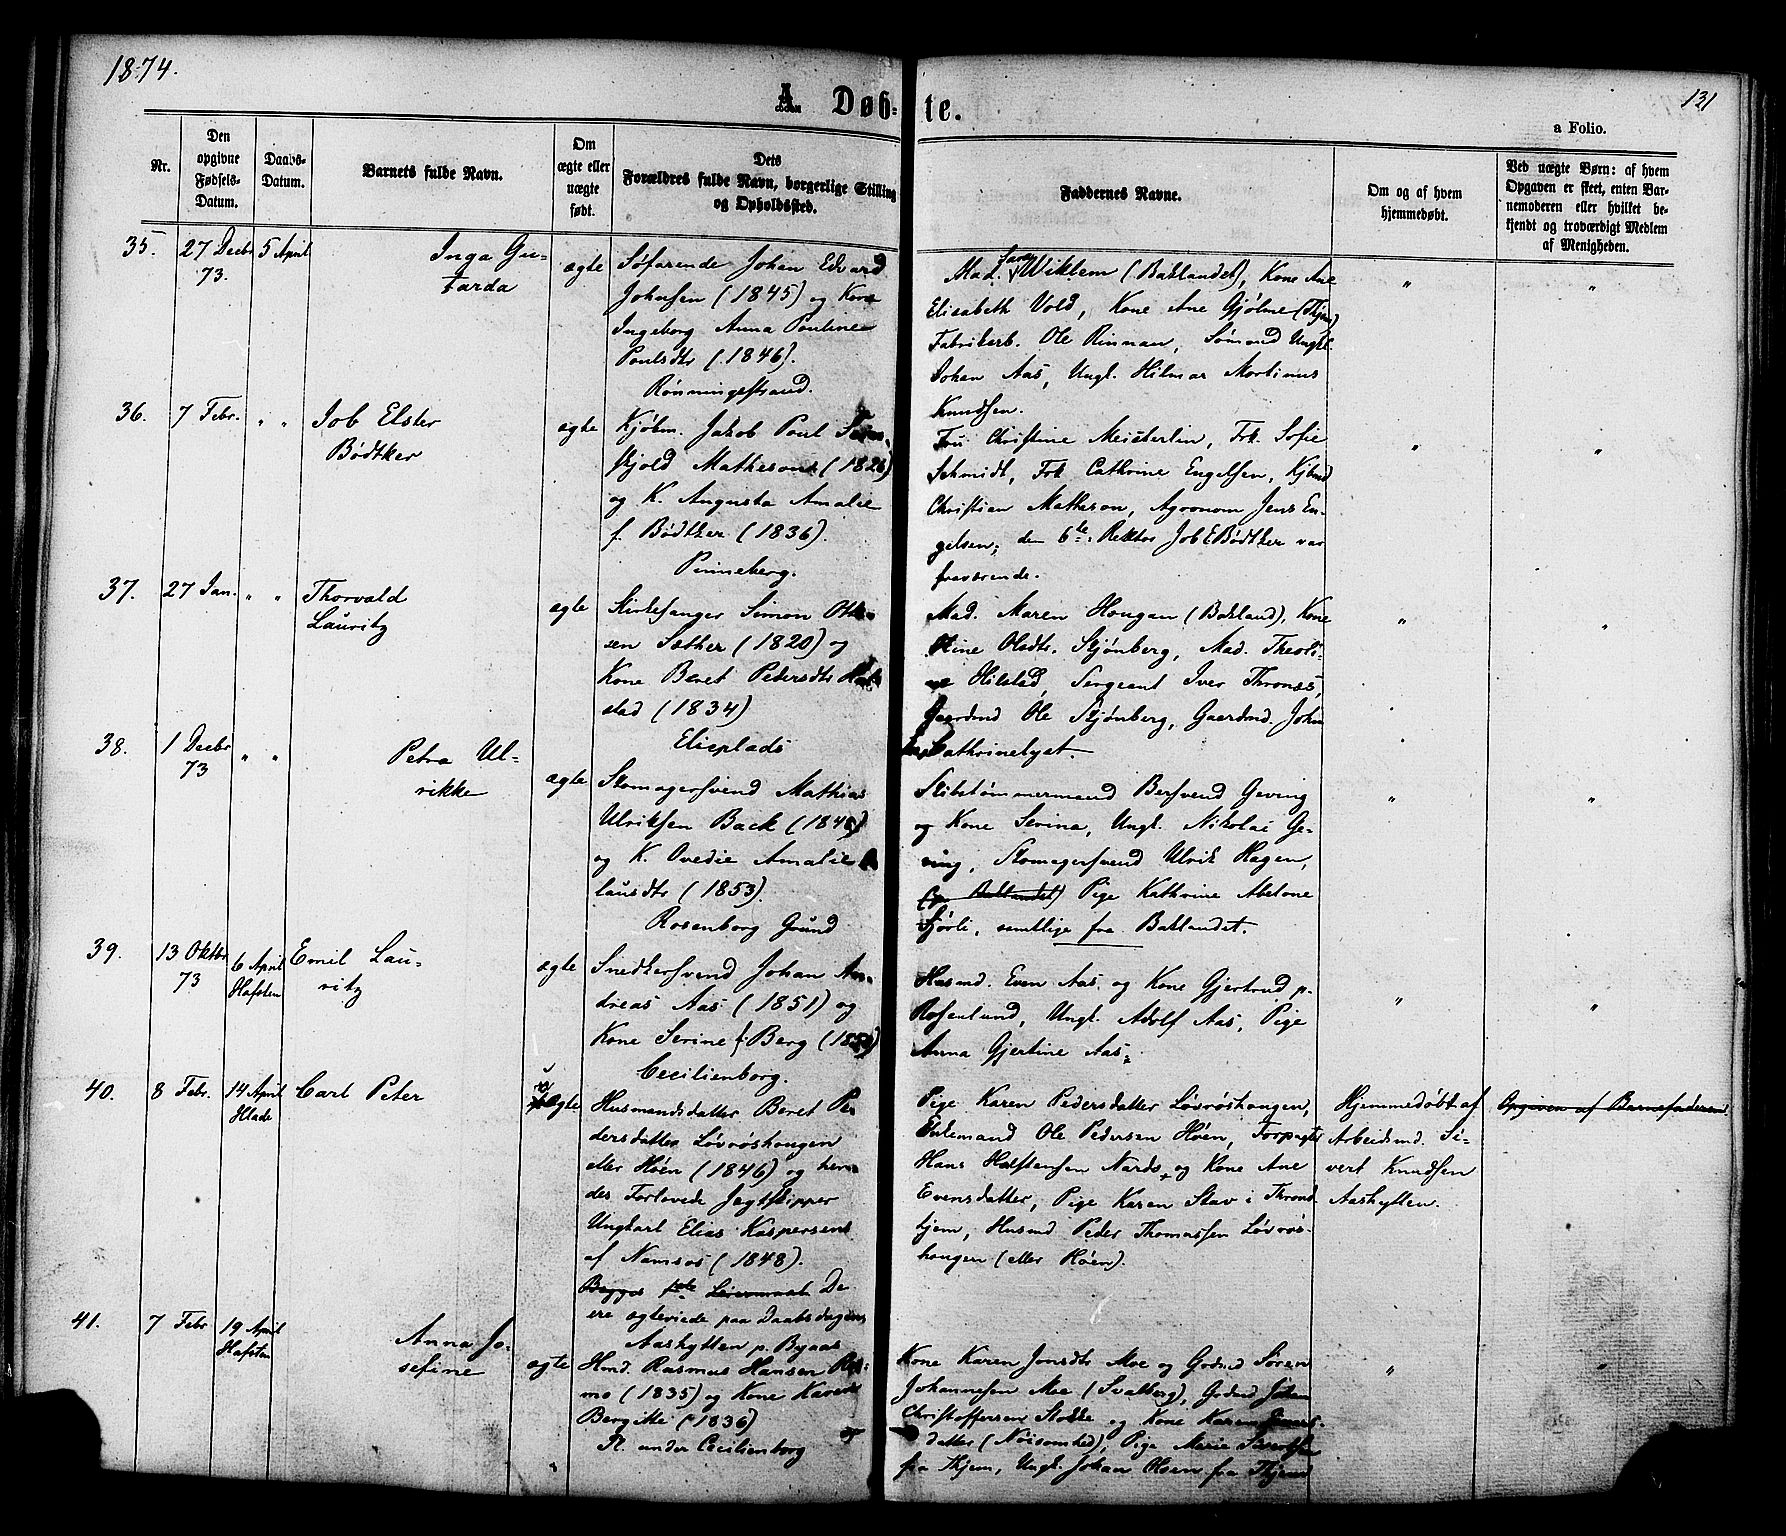 1874.
131
A. Døb-
te.
a Folio.
Nr.
Den
opgivne
Fødsels-
Datum.
Daabs-
Datum.
Barnets fulde Navn.
Om
ægte eller
uægte
født.
Dets
Forældres fulde Navn, borgerlige Stilling
og Opholdssted.
Faddernes Navne.
Om og af hvem
hjemmedøbt.
Ved uægte Børn: af hvem
Opgaven er skeet, enten Bar-
nemoderen eller hvilket be-
kjendt og troværdigt Medlem
af Menigheden.
35.
27 Decbr
73.
5 April
Inga Gu-
tarda
ægte
Søfarende Johan Edvard
Johnsen (1845) og Kone
Ingeborg Anna Pouline
Poulsdtr (1846).
Rønningestrand.
Mad. Wiklem (Baklandet), Kone Ane
Elisabeth Vold, Kone Ane Gjølme (Thjem)
Fabrikarb. Ole Rinnan, Sømand Ungk.
Johan Aas, Ungk. Hilmar Martinus
Knudsen.
"
"
36.
7 Febr.
" "
Job Elster
Bødtker
ægte
Kjøbm. Jakob Poul
skjold Matheson (1826)
og K. Augusta Amalie
f. Bødtker (1836).
Pinneberg.
Fru Christine Meisterlin, Frk. Sofie
Schmidt, Frk Cathrine Engelsen, Kjbmd
Christian Matheson, Agronom Jens En-
gelsen; den 6te. Rektor Job E Bødtker var
fraværende.
"
"
37.
27 Jan.
" "
Thorvald
Lauritz
ægte
Kirkesanger Simon Otte-
sen Sæther (1820) og
Kone Beret Pedersdtr
stad (1834)
Elieplads
Mad. Maren Hougan (Bakland), Kone
Oline Olsdtr. Skjønberg, Mad. Theoli-
ne Hilstad, Sergeant Iver Thronæs,
Gaardmd Ole Skjønberg, Gaardmd. John
Cathrinelyst.
"
"
38.
1 Decbr
73
" "
Petra Ul-
rikke
ægte
Skomagersvend Mathias
Ulriksen Back (1848)
og K. Ovedie Amalie
lausdtr (1853).
Rosenborg Grund
Skibstømmermand Bersvend Geving
og Kone Serina, Ungk. Nikolai Ge-
ving, Skomagersvend Ulrik Hagen,
(p. Baklandet) Pige Kathrine Abelone
Sjørli, samtlige fra Baklandet.
"
"
39.
13 Oktbr
73
6 April
Hafsten
Emil Lau-
ritz
ægte
Snedkersvend Johan An-
dreas Aas (1851) og
Kone Serine f. Berg
Cecilienborg.
Husmd. Even Aas, og Kone Gjertrud p.
Rosenlund, Ungk. Adolf Aas, Pige
Anna Gjertine Aas.
"
"
40.
8 Febr.
14 April
Hlade
Carl Peter
uægte
Husmandsdatter Beret Pe
dersdatter Løvrøshougen
eller Høen (1846) og hen-
des Forlovede Jagtskipper
Ungkarl Elias Kaspersen
af Namsos (1848).
Begges 1ste Leiermaal De
ere ægteviede paa Daabsdagen
Aashytten p. Byaas
Pige Karen Pedersdatter Løvrøshougen,
Ole Pedersen Høen, Forpagter
Hans Halstensen Nardo, og Kone Ane
Evensdatter, Pige Karen Stav i Thrond-
hjem, Husmd Peder Thomassen Løvrøs-
hougen (eller Høen).
Hjemmedøbt af
Arbeidsmd. Si-
vert Knudsen
Aashytten.
Opgiven af Barnefaderen.
41.
7 Febr
19 April
Hafsten
Anna Jo-
sefine
ægte
Hmd. Rasmus Hansen
mo (1835) og Kone Karen
Bergitte (1836)
Pl. under Cecilienborg
Kone Karen Jonsdtr Moe og Gbdmd Søren
Johannesen Moe (Svalberg), Gbdmd Johan
Christoffersen Stokke og Kone Karen
datter (Nøisomhed), Pige Marie
fra Thjem, Ungk. Johan Olsen fra Thjem
"
"